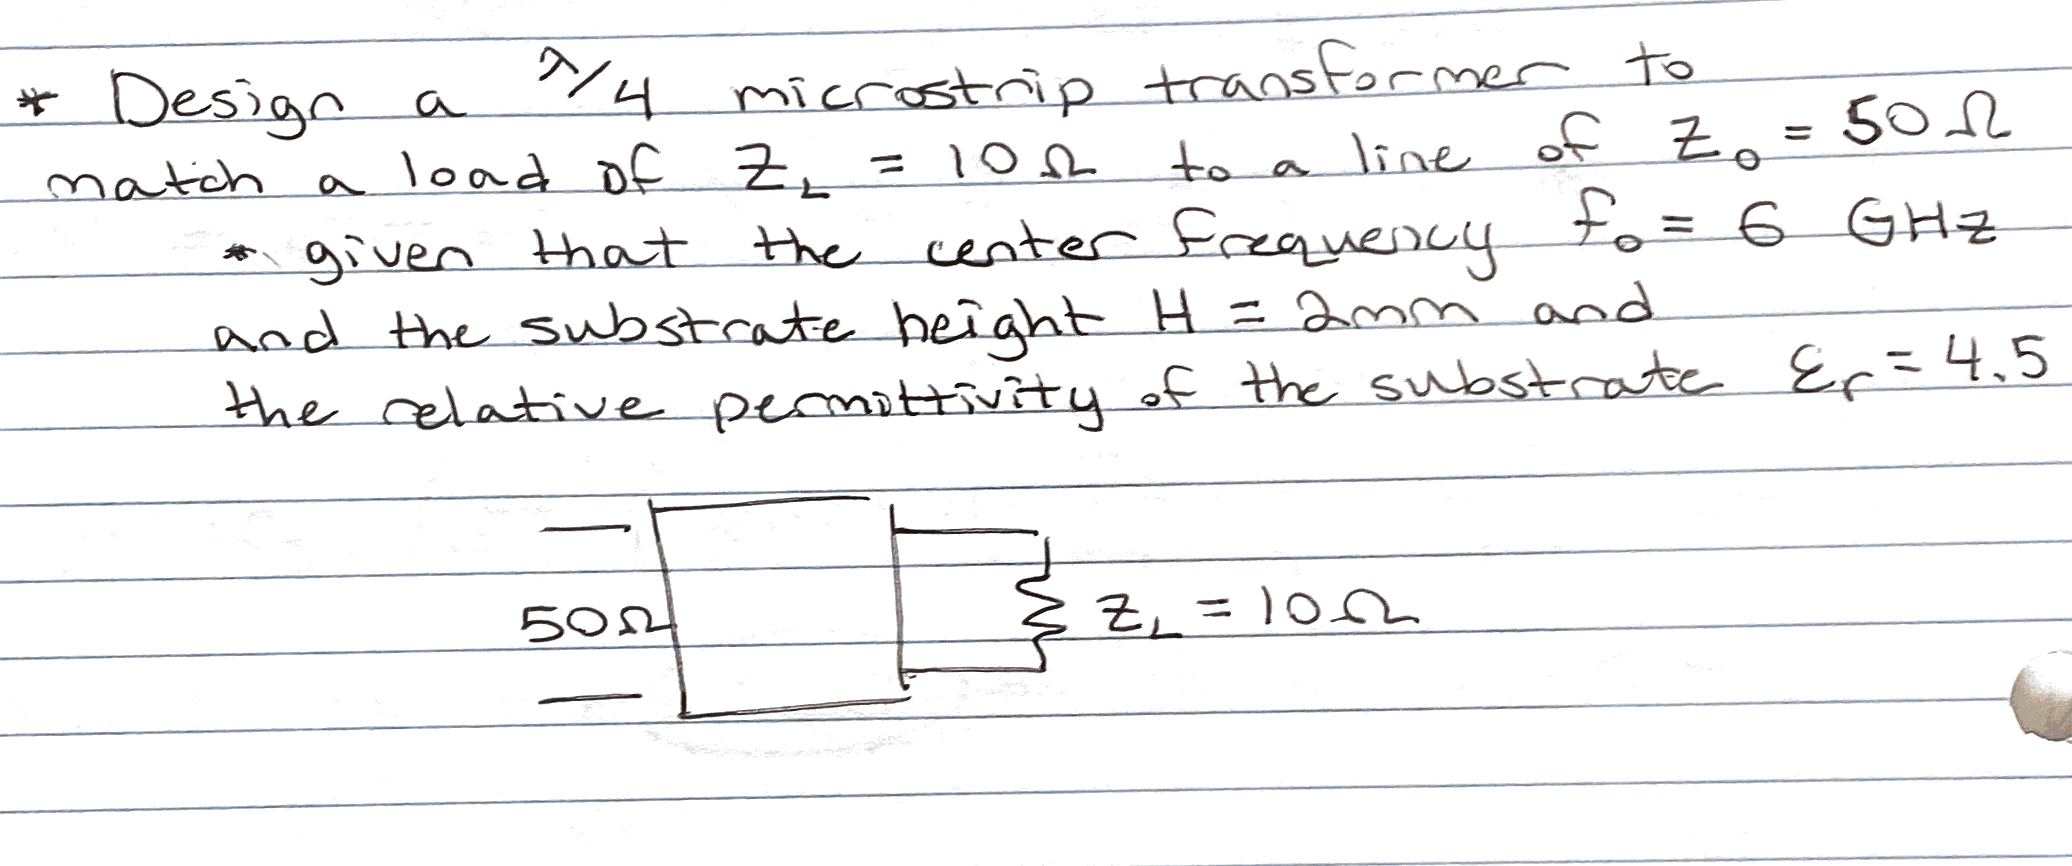 * Design a λ/4 microstrip transformer to
match a load of Z_L = 10 Ω to a line of Z_0 = 50 Ω
* given that the center frequency f_0 = 6 GHz
and the substrate height H = 2mm and
the relative permittivity of the substrate ε_r = 4.5
50Ω
Z_L = 10Ω